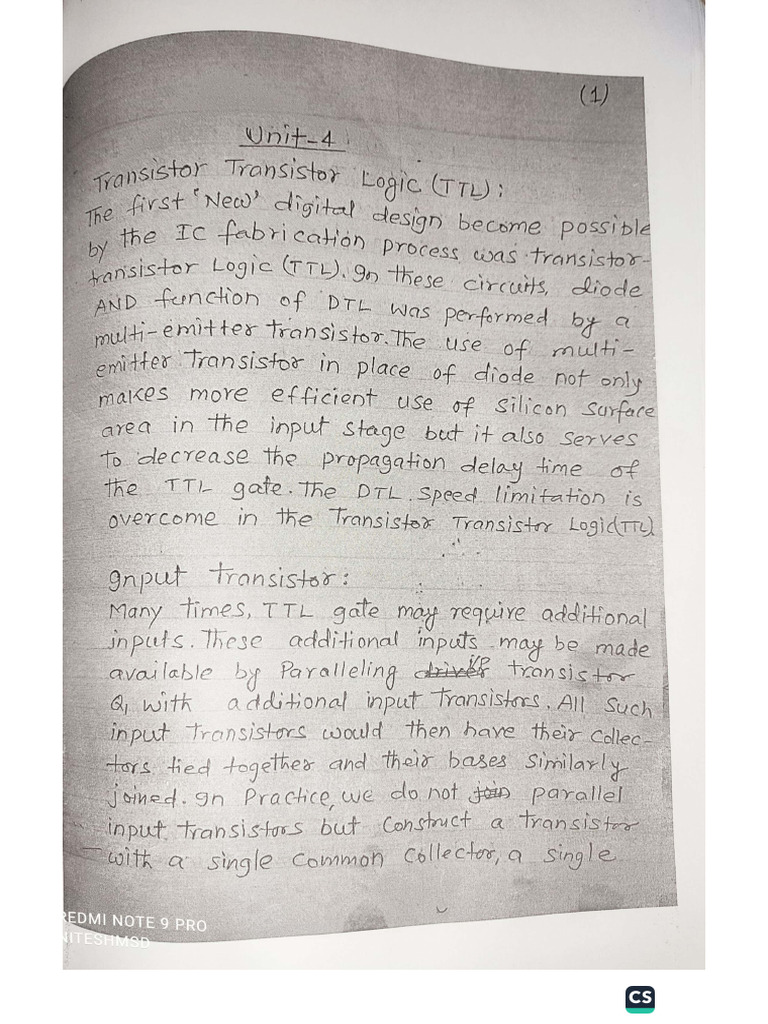 (1)
Unit-4
Transistor Transistor Logic (TTL):
The first 'New' digital design become possible
by the IC fabrication process was transistor-
transistor Logic (TTL). In these circuits, diode
AND function of DTL was performed by a
multi-emitter transistor. The use of multi-
emitter Transistor in place of diode not only
makes more efficient use of silicon surface
area in the input stage but it also serves
to decrease the propagation delay time of
the TTL gate. The DTL speed limitation is
overcome in the Transistor Transistor Logic(TTL)
Input transistor:
Many times, TTL gate may require additional
inputs. These additional inputs may be made
available by Paralleling driver I/P transistor
Q1 with additional input Transistors. All such
input Transistors would then have their collec-
tors tied together and their bases similarly
joined. In Practice, we do not join parallel
input transistors but construct a transistor
with a single common collector, a single
REDMI NOTE 9 PRO
NITESHMSD
CS